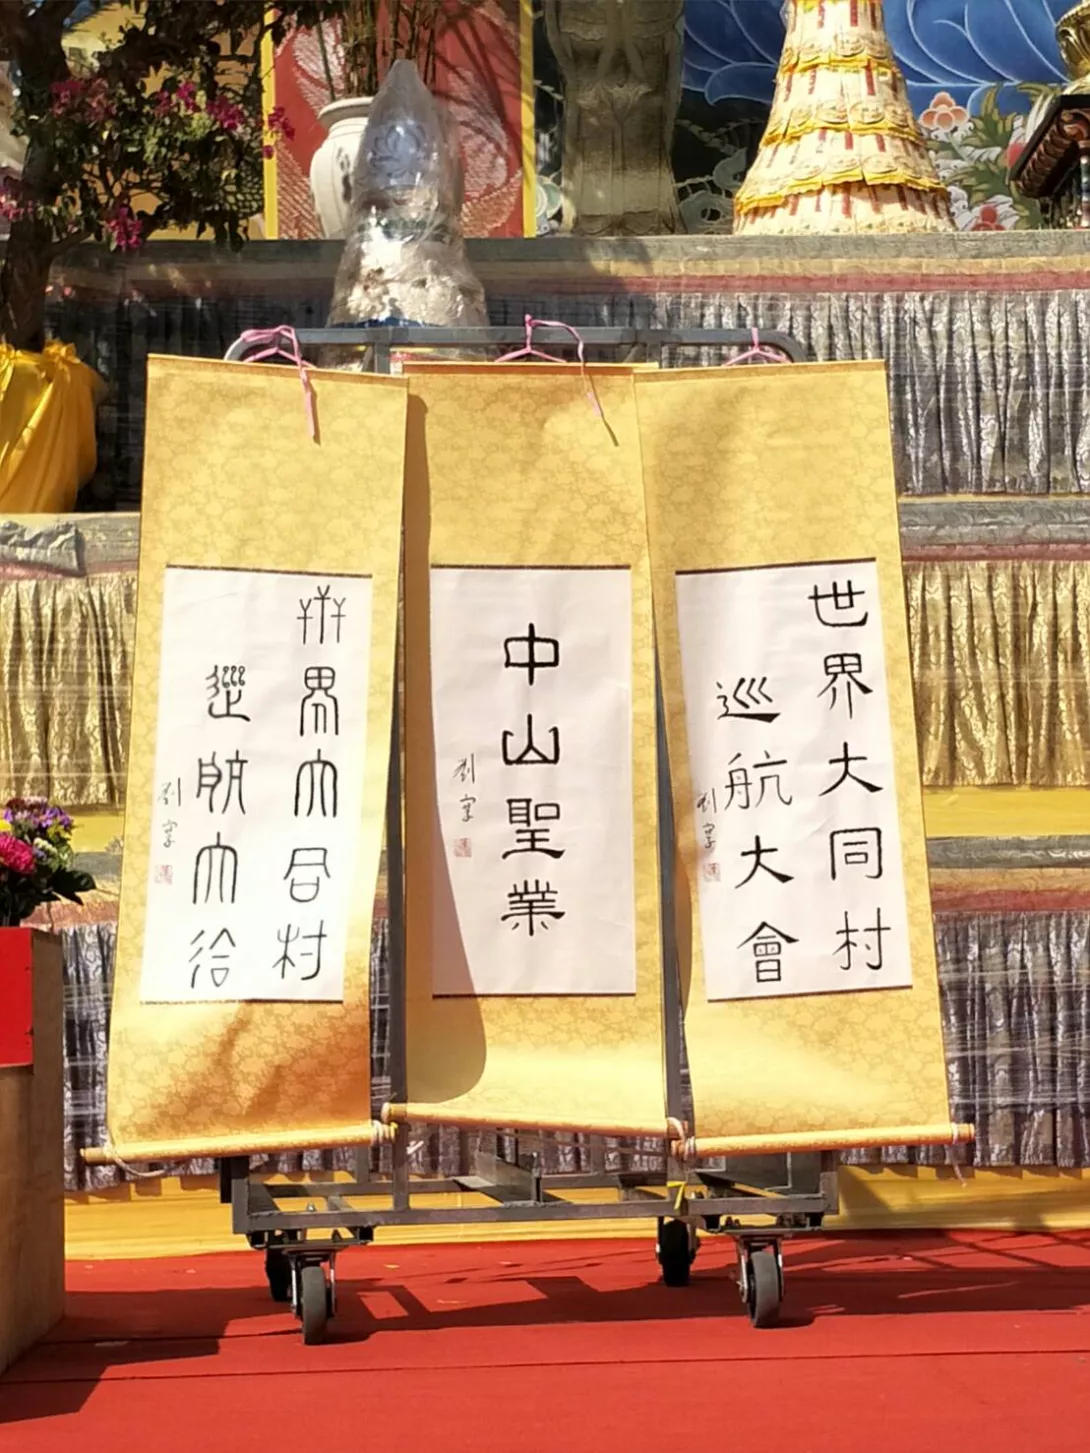 世界大同村
巡航大會
劉
中山聖業
劉
世界大同村
巡航大會
劉